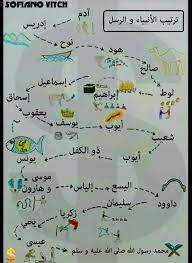 SOFIANO VITCH
ترتيب الأنبياء و الرسل
آدم
إدريس
نوح
هود
صالح
لوط
إبراهيم
إسماعيل
إسحاق
يعقوب
يوسف
أيوب
شعيب
أيوب
ذو الكفل
يونس
موسى
و هارون
إلياس
اليسع
داوود
سليمان
زكريا
يحي
عيسى
محمد رسول الله صلى الله عليه و سلم